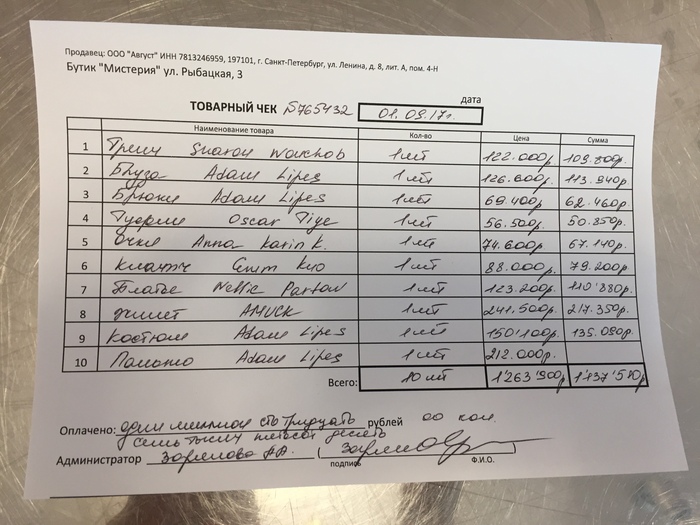 Продавец: ООО "Август" ИНН 7813246959, 197101, г. Санкт-Петербург, ул. Ленина, д. 8, лит. А, пом. 4-Н
Бутик "Мистерия" ул. Рыбацкая, 3
дата
ТОВАРНЫЙ ЧЕК 5765432 01.09.17г.
Наименование товара Кол-во Цена Сумма
1 Тренч Sharon Wauchob 1 шт 122.000р 109.800р.
2 Блуза Adam Lipes 1 шт 126.600р 113.940р
3 Брюки Adam Lipes 1 шт 69.400р 62.460р
4 Туфли Oscar Tiye 1 шт 56.500р 50.850р.
5 Очки Anna Karin K. 1 шт 74.600р 67.140р
6 Клатч 1 шт 88.000р. 79.200р
7 Платье Nellie Partow 1 шт 123.200р 110'880р.
8 Жилет AMUCK 1 шт 241.500р 217.350р.
9 Костюм Adam Lipes 1 шт 150'100р 135.090р.
10 Пальто Adam Lipes 1 шт 212.000р.
Всего: 10 шт 1'263'900р 1'137'510р
Оплачено: один миллион сто тридцать рублей 00 коп.
семь тысяч пятьсот десять
Администратор
подпись Ф.И.О.